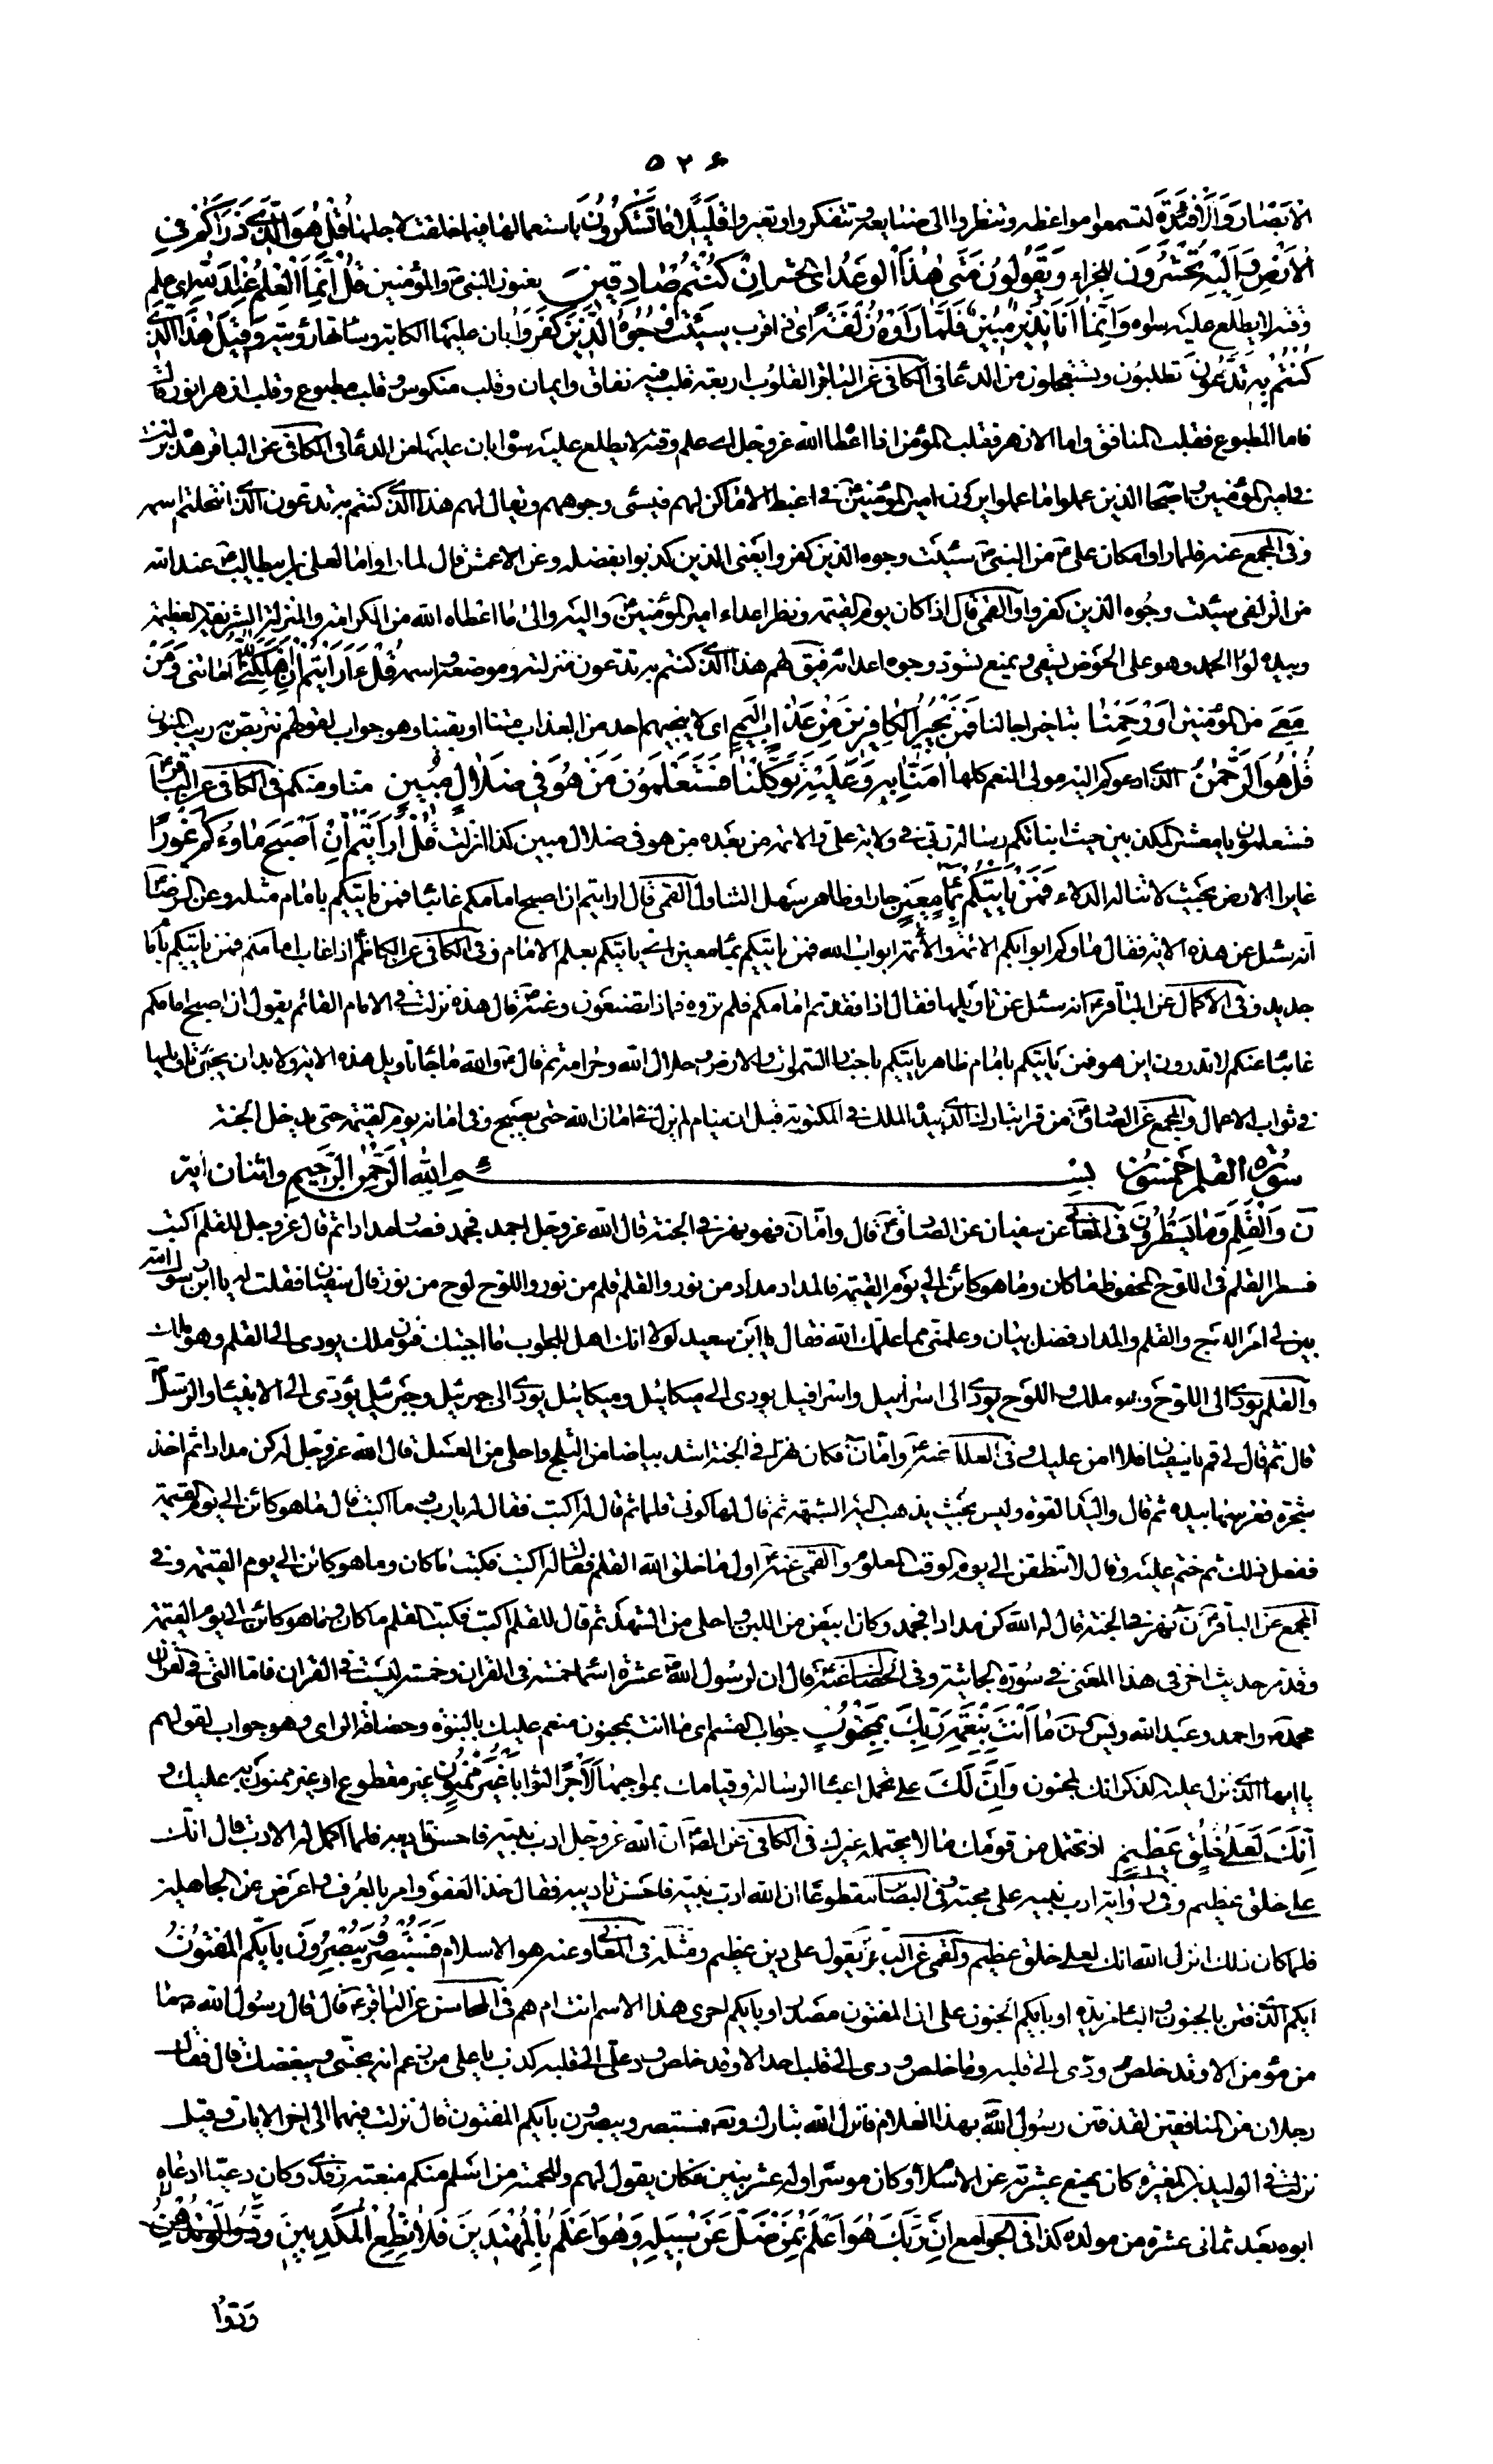 ٥٢۶
الْاَبْصٰارَ وَالْاَفْئِدَةَ لتسمعوا مواعظه وتنظروا الى صنايعه وتتفكروا وتعتبروا قَلِيلًا مٰا تَشْكُرُونَ باستعمالها فيما خلقت لاجلها قُلْ هُوَ الَّذِي ذَرَاَكُمْ فِي
الْاَرْضِ وَاِلَيْهِ تُحْشَرُونَ للجزاء وَيَقُولُونَ مَتٰى هٰذَا الْوَعْدُ اى الحشر اِنْ كُنْتُمْ صٰادِقِينَ يعنون النبى والمؤمنين قُلْ اِنَّمَا الْعِلْمُ عِنْدَ اللّٰهِ اى علم
وقته لا يطلع عليه سواه وَاِنَّمٰا اَنَا نَذِيرٌ مُبِينٌ فَلَمّٰا رَاَوْهُ زُلْفَةً اى ذا قرب سِيئَتْ وُجُوهُ الَّذِينَ كَفَرُوا بان عليها الكابة وسائتها رؤيته وَقِيلَ هٰذَا الَّذِي
كُنْتُمْ بِهِ تَدَّعُونَ تطلبون وتستعجلون من الدعا فى الكافى عن الباقر القلوب اربعة قلب فيه نفاق وايمان وقلب منكوس وقلب مطبوع وقلب ازهر انور
فاما المطبوع فقلب المنافق واما الازهر فقلب المؤمن اذا اعطا الله عز وجل اى علم وقته لا يطلع عليه سوا بان عليها من الدعا فى الكافى عن الباقر هذه نزلت
فى امير المؤمنين واصحابه الذين عملوا ما عملوا يرون امير المؤمنين فى اغبط الاماكن لهم فيسئ وجوههم ويقال لهم هذا الذى كنتم به تدعون الذى انتحلتم اسمه
وفى المجمع عنه فلما راوا مكان على من النبى سيئت وجوه الذين كفروا يعنى الذين كذبوا بفضله وعن الاعمش قال لما راوا ما لعلى بن ابيطالب عند الله
من الزلفى سيئت وجوه الذين كفروا والقمى قال اذا كان يوم القيمة ونظر اعداء امير المؤمنين اليه والى ما اعطاه الله من الكرامة والمنزلة الشريفة العظيمة
وبيده لواء الحمد وهو على الحوض يسقى ويمنع تسود وجوه اعدائه فيق لهم هذا الذى كنتم به تدعون منزلته وموضعه واسمه قُلْ اَرَاَيْتُمْ اِنْ اَهْلَكَنِيَ اللّٰهُ اماتنى وَمَنْ
مَعِيَ من المؤمنين اَوْ رَحِمَنٰا بتاخير اجالنا فَمَنْ يُجِيرُ الْكٰافِرِينَ مِنْ عَذٰابٍ اَلِيمٍ اى لا ينجيهم احد من العذاب متنا او بقينا وهو جواب لقولهم نتربص به ريب المنون
قُلْ هُوَ الرَّحْمٰنُ الذى ادعوكم اليه مولى النعم كلها اٰمَنّٰا بِهِ وَعَلَيْهِ تَوَكَّلْنٰا فَسَتَعْلَمُونَ مَنْ هُوَ فِي ضَلٰالٍ مُبِينٍ منا ومنكم فى الكافى عن الباقر
فستعلمون يا معشر المكذبين حيث انباتكم رسالة ربى فى ولاية على والائمة من بعده من هو فى ضلال مبين كذا انزلت قُلْ اَرَاَيْتُمْ اِنْ اَصْبَحَ مٰاؤُكُمْ غَوْرًا
غايرا فى الارض بحيث لا تناله الدلاء فَمَنْ يَاْتِيكُمْ بِمٰاءٍ مَعِينٍ جار او ظاهر سهل التناول القمى قال ارايتم ان اصبح امامكم غائبا فمن ياتيكم بامام مثله وعن الرضا
انه سئل عن هذه الاية فقال ماؤكم ابوابكم الائمة والائمة ابواب الله فمن ياتيكم بماء معين اى ياتيكم بعلم الامام وفى الكافى عن الكاظم اذا غاب امامكم فمن ياتيكم بامام
جديد وفى الاكمال عن الباقر انه سئل عن تاويلها فقال اذا فقدتم امامكم فلم تروه فماذا تصنعون وعنه قال هذه نزلت فى الامام القائم يقول ان اصبح امامكم
غائبا عنكم لا تدرون اين هو فمن ياتيكم بامام ظاهر ياتيكم باخبار السموات والارض وحلال الله وحرامه ثم قال والله ما جاء تاويل هذه الاية ولا بد ان يجئ تاويلها
فى ثواب الاعمال والمجمع عن الصادق من قرا تبارك الذى بيده الملك فى المكتوبة قبل ان ينام لم يزل فى امان الله حتى يصبح وفى امانه يوم القيمة حتى يدخل الجنة
سُورَة القلم خمسون بِسْمِ اللّٰهِ الرَّحْمٰنِ الرَّحِيمِ واثنان اية
نٓ وَالْقَلَمِ وَمٰا يَسْطُرُونَ فى المعانى عن سفيان عن الصادق قال واما ن فهو نهر فى الجنة قال الله عز وجل اجمد فجمد فصار مدادا ثم قال عز وجل للقلم اكتب
فسطر القلم فى اللوح المحفوظ ما كان وما هو كائن الى يوم القيمة فالمداد مداد من نور والقلم قلم من نور واللوح لوح من نور قال سفيان فقلت له يا ابن رسول الله
بين لى امر اللوح والقلم والمداد فضل بيان وعلمنى مما علمك الله فقال يا ابن سعيد لولا انك اهل للجواب ما اجبتك فنون ملك يودى الى القلم وهو ملك
والقلم يودى الى اللوح وهو ملك واللوح يودى الى اسرافيل واسرافيل يودى الى ميكائيل وميكائيل يودى الى جبرئيل وجبرئيل يؤدى الى الانبياء والرسل
قال ثم قال لى قم يا سفيان فلا امن عليك وفى العلل عنه واما ن فكان نهرا فى الجنة اشد بياضا من الثلج واحلى من العسل قال الله عز وجل له كن مدادا ثم اخذ
شجرة فغرسها بيده ثم قال واليد القوة وليس بحيث يذهب اليه المشبهة ثم قال لها كونى قلما ثم قال له اكتب فقال له يا رب وما اكتب قال ما هو كائن الى يوم القيمة
ففعل ذلك ثم ختم عليه وقال لا تنطقن الى يوم الوقت المعلوم والقمى عنه اول ما خلق الله القلم فقال له اكتب فكتب ما كان وما هو كائن الى يوم القيمة وفى
المجمع عن الباقر ن نهر فى الجنة قال له الله كن مدادا فجمد وكان ابيض من اللبن واحلى من الشهد ثم قال للقلم اكتب فكتب القلم ما كان وما هو كائن الى يوم القيمة
وقد مر حديث اخر فى هذا المعنى فى سورة الجاثية وفى الخصال عنه قال ان لرسول الله عشرة اسما خمسة فى القران وخمسة ليست فى القران فاما التى فى القران
محمد واحمد وعبد الله ويس ون مٰا اَنْتَ بِنِعْمَةِ رَبِّكَ بِمَجْنُونٍ جواب القسم اى ما انت بمجنون منعم عليك بالنبوة وحصافة الراى وهو جواب لقولهم
يا ايها الذى نزل عليه الذكر انك لمجنون وَاِنَّ لَكَ على تحمل اعباء الرسالة وقيامك بمواجبها لَاَجْرًا لثوابا غَيْرَ مَمْنُونٍ غير مقطوع او غير ممنون به عليك و
اِنَّكَ لَعَلٰى خُلُقٍ عَظِيمٍ اذ تحتمل من قومك ما لا يحتمله غيرك فى الكافى عن الصادق ان الله عز وجل ادب نبيه فاحسن تاديبه فلما اكمل له الادب قال انك
لعلى خلق عظيم وفى رواية ادب نبيه على محبته وفى البصائر مقطوعا ان الله ادب نبيه فاحسن تاديبه فقال خذ العفو وامر بالعرف واعرض عن الجاهلين
فلما كان ذلك انزل الله انك لعلى خلق عظيم والقمى عن الباقر يقول على دين عظيم ومثله فى المعانى وعنه هو الاسلام فَسَتُبْصِرُ وَيُبْصِرُونَ بِاَيِّكُمُ الْمَفْتُونُ
ايكم الذى فتن بالجنون والباء مزيدة او بايكم الجنون على ان المفتون مصدر او بايكم احرى هذا الاسم انت ام هم فى المحاسن عن الباقر قال قال رسول الله ما
من مؤمن الا وقد خلص ودى الى قلبه وما خلص ودى الى قلب احد الا وقد خلص ود على الى قلبه كذب يا على من زعم انه يحبنى ويبغضك قال فقال
رجلان من المنافقين لقد فتن رسول الله بهذا الغلام فانزل الله تبارك وتعه فستبصر ويبصرون بايكم المفتون قال نزلت فيهما الى اخر الايات وقيل
نزلت فى الوليد بن المغيرة كان يمنع عشيرته عن الاسلام وكان موسرا وله عشر بنين فكان يقول لهم وللحمته من اسلم منكم منعته رفدى وكان دعيا ادعاه
ابوه بعد ثمانى عشرة من مولده كذا فى الجوامع اِنَّ رَبَّكَ هُوَ اَعْلَمُ بِمَنْ ضَلَّ عَنْ سَبِيلِهِ وَهُوَ اَعْلَمُ بِالْمُهْتَدِينَ فَلٰا تُطِعِ الْمُكَذِّبِينَ وَدُّوا لَوْ تُدْهِنُ
وَدّوا